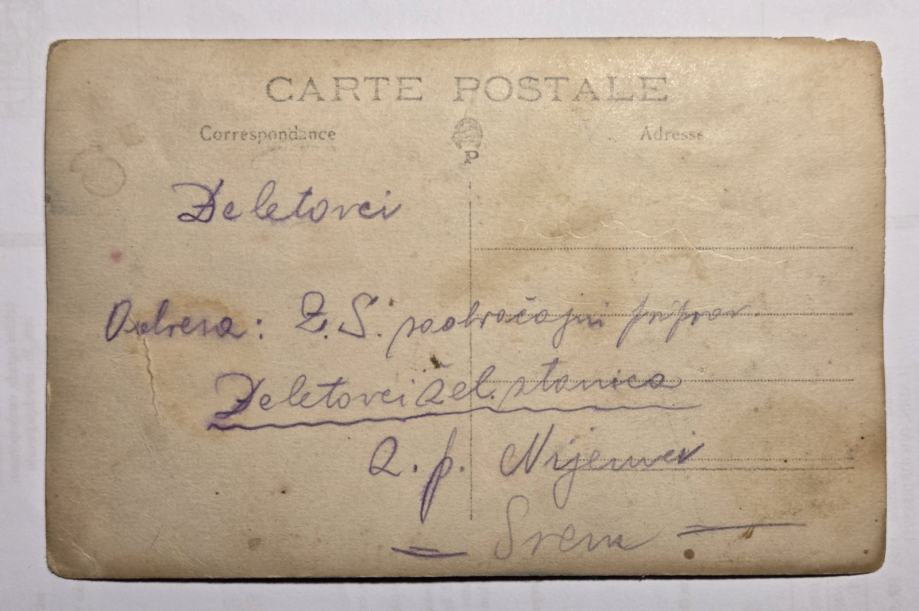 CARTE POSTALE
Correspondance
Adresse
P
Deletovci
Adresa: Z. S. saobraćajni priprav.
Deletovci žel. stanica
z. p. Nijemci
Srem